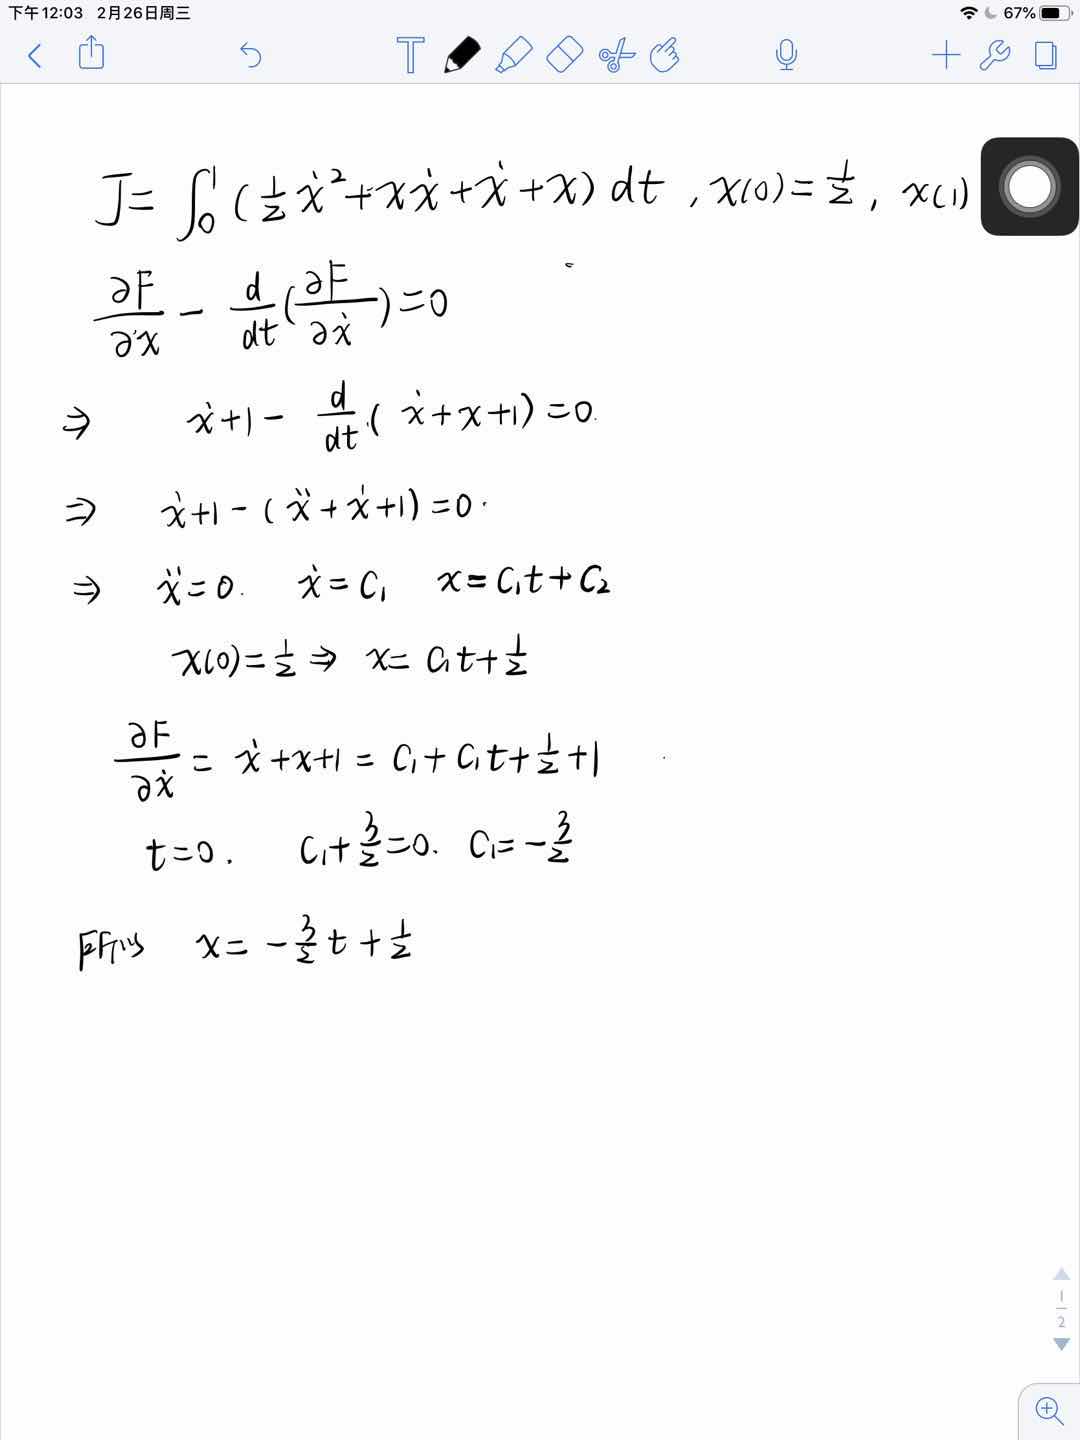 下午12:03 2月26日周三 67%
T
J = ∫₀¹ (½ẋ² + xẋ + ẋ + x) dt , x(0) = ½ , x(1)
∂F/∂x − d/dt(∂F/∂ẋ) = 0
⇒ ẋ + 1 − d/dt (ẋ + x + 1) = 0.
⇒ ẋ + 1 − (ẍ + ẋ + 1) = 0.
⇒ ẍ = 0. ẋ = C₁ x = C₁t + C₂
x(0) = ½ ⇒ x = C₁t + ½
∂F/∂ẋ = ẋ + x + 1 = C₁ + C₁t + ½ + 1
t = 0. C₁ + 3/2 = 0. C₁ = − 3/2
所以 x = − 3/2 t + ½
1/2